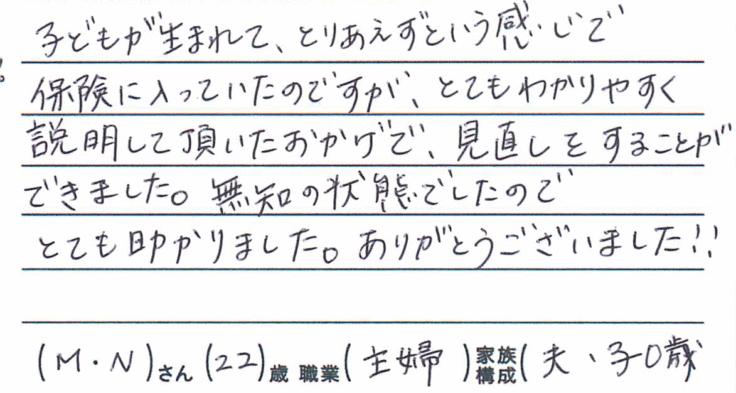 子どもが生まれて、とりあえずという感じで
保険に入っていたのですが、とてもわかりやすく
説明して頂いたおかげで、見直しをすることが
できました。無知の状態でしたので
とても助かりました。ありがとうございました!!
(M・N)さん(22)歳 職業(主婦)家族構成(夫、子0歳